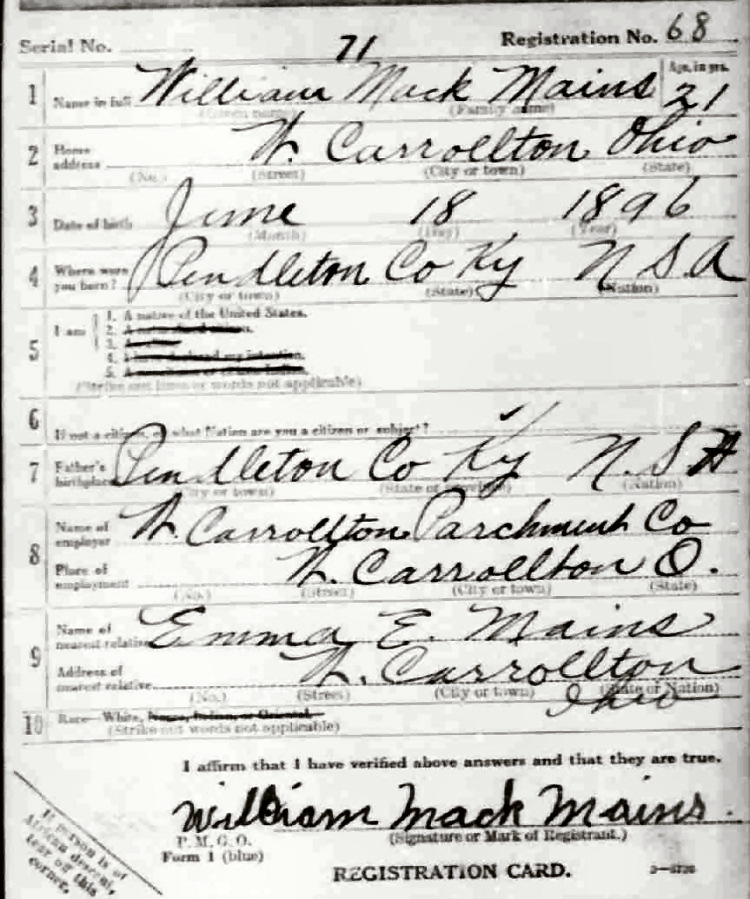 Serial No. 71 Registration No. 68
1 Name in full William Mack Mains Age, in yrs. 21
(Given name) (Family name)
2 Home address W. Carrollton Ohio
(No.) (Street) (City or town) (State)
3 Date of birth June 18 1896
(Month) (Day) (Year)
4 Where were you born? Pendleton Co Ky U S A
(City or town) (State) (Nation)
5 I am 1. A native of the United States.
2. A
3.
4.
5. A
(Strike out lines or words not applicable)
6 If not a citizen, of what Nation are you a citizen or subject?
7 Father's birthplace Pendleton Co Ky U.S A
(City or town) (State or Province) (Nation)
8 Name of employer W Carrollton Parchment Co
Place of employment W. Carrollton O.
(No.) (Street) (City or town) (State)
9 Name of nearest relative Emma E. Mains
Address of nearest relative W. Carrollton
(No.) (Street) (City or town) (State or Nation)
Ohio
10 Race—White, Negro, Indian, or Oriental.
(Strike out words not applicable)
I affirm that I have verified above answers and that they are true.
William Mack Mains.
P. M. G. O. (Signature or Mark of Registrant.)
Form 1 (blue)
REGISTRATION CARD.
If person is of
African descent,
tear off this
corner.